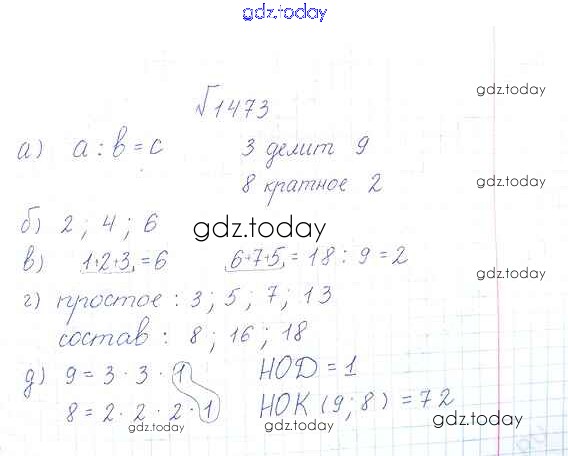 gdz.today
№1473
gdz.today
а) a : b = c 3 делит 9
8 кратное 2
gdz.today
б) 2 ; 4 ; 6
gdz.today
в) 1+2+3 = 6 6+7+5 = 18 : 9 = 2
gdz.today
г) простое : 3 ; 5 ; 7 ; 13
состав : 8 ; 16 ; 18
д) 9 = 3 · 3 · 1 НОД = 1
8 = 2 · 2 · 2 · 1 НОК (9; 8) = 72
gdz.today gdz.today gdz.today